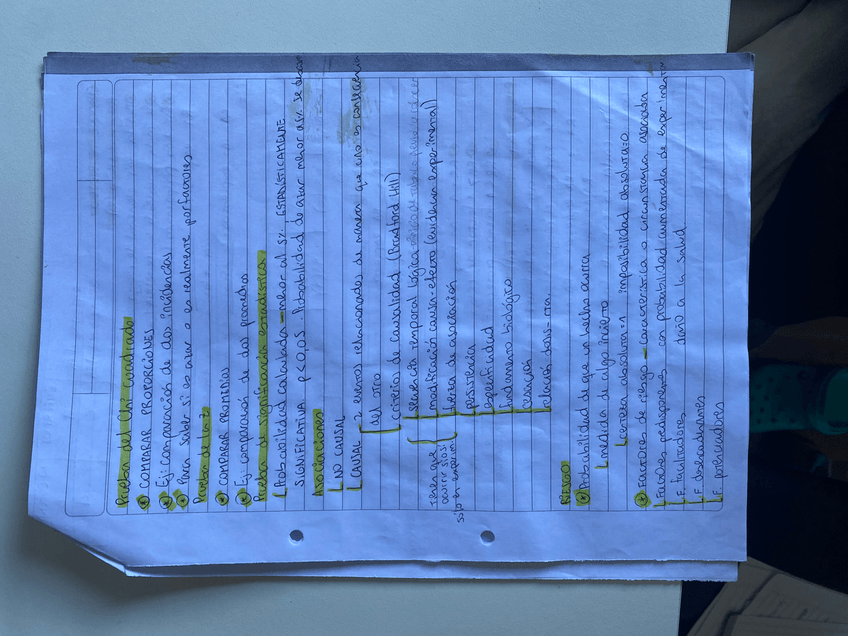 Prueba del Chi cuadrado
* COMPARAR PROPORCIONES
* Ej: comparación de dos incidencias
* Para saber si es azar o es realmente por factores
Prueba de la Z
* COMPARAR PROMEDIOS
* Ej: comparación de dos promedios
Prueba de significación estadística
Probabilidad calculada - menor al 5% ESTADÍSTICAMENTE
SIGNIFICATIVA p<0,05 Probabilidad de azar menor a 5% se
Asociaciones
NO CAUSAL
CAUSAL 2 eventos relacionados de manera que uno es consecuencia
del otro
criterios de causalidad (Bradford Hill)
temporal lógica
modificación causa-efecto (evidencia experimental)
fuerza de asociación
persistencia
especificidad
fundamento biológico
relación dosis-rta.
tiene que
ocurrir sí o sí
sólo en experim.
RIESGO
* Probabilidad de que un hecho ocurra
medida de algo incierto
certeza absoluta=1 imposibilidad absoluta=0
* Factores de riesgo - característica o circunstancia asociada
con probabilidad aumentada de experimentar
daño a la salud
Factores predisponentes
F. facilitadores
F. desencadenantes
F. potenciadores